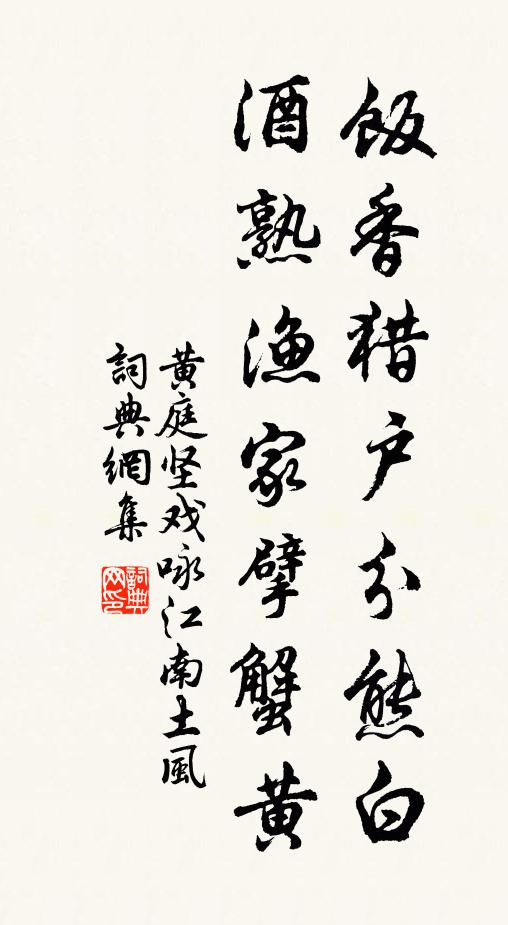 飯香猎户分熊白
酒熟渔家擘蟹黄
黄庭坚戏咏江南土風
詞典網集
詞典网印